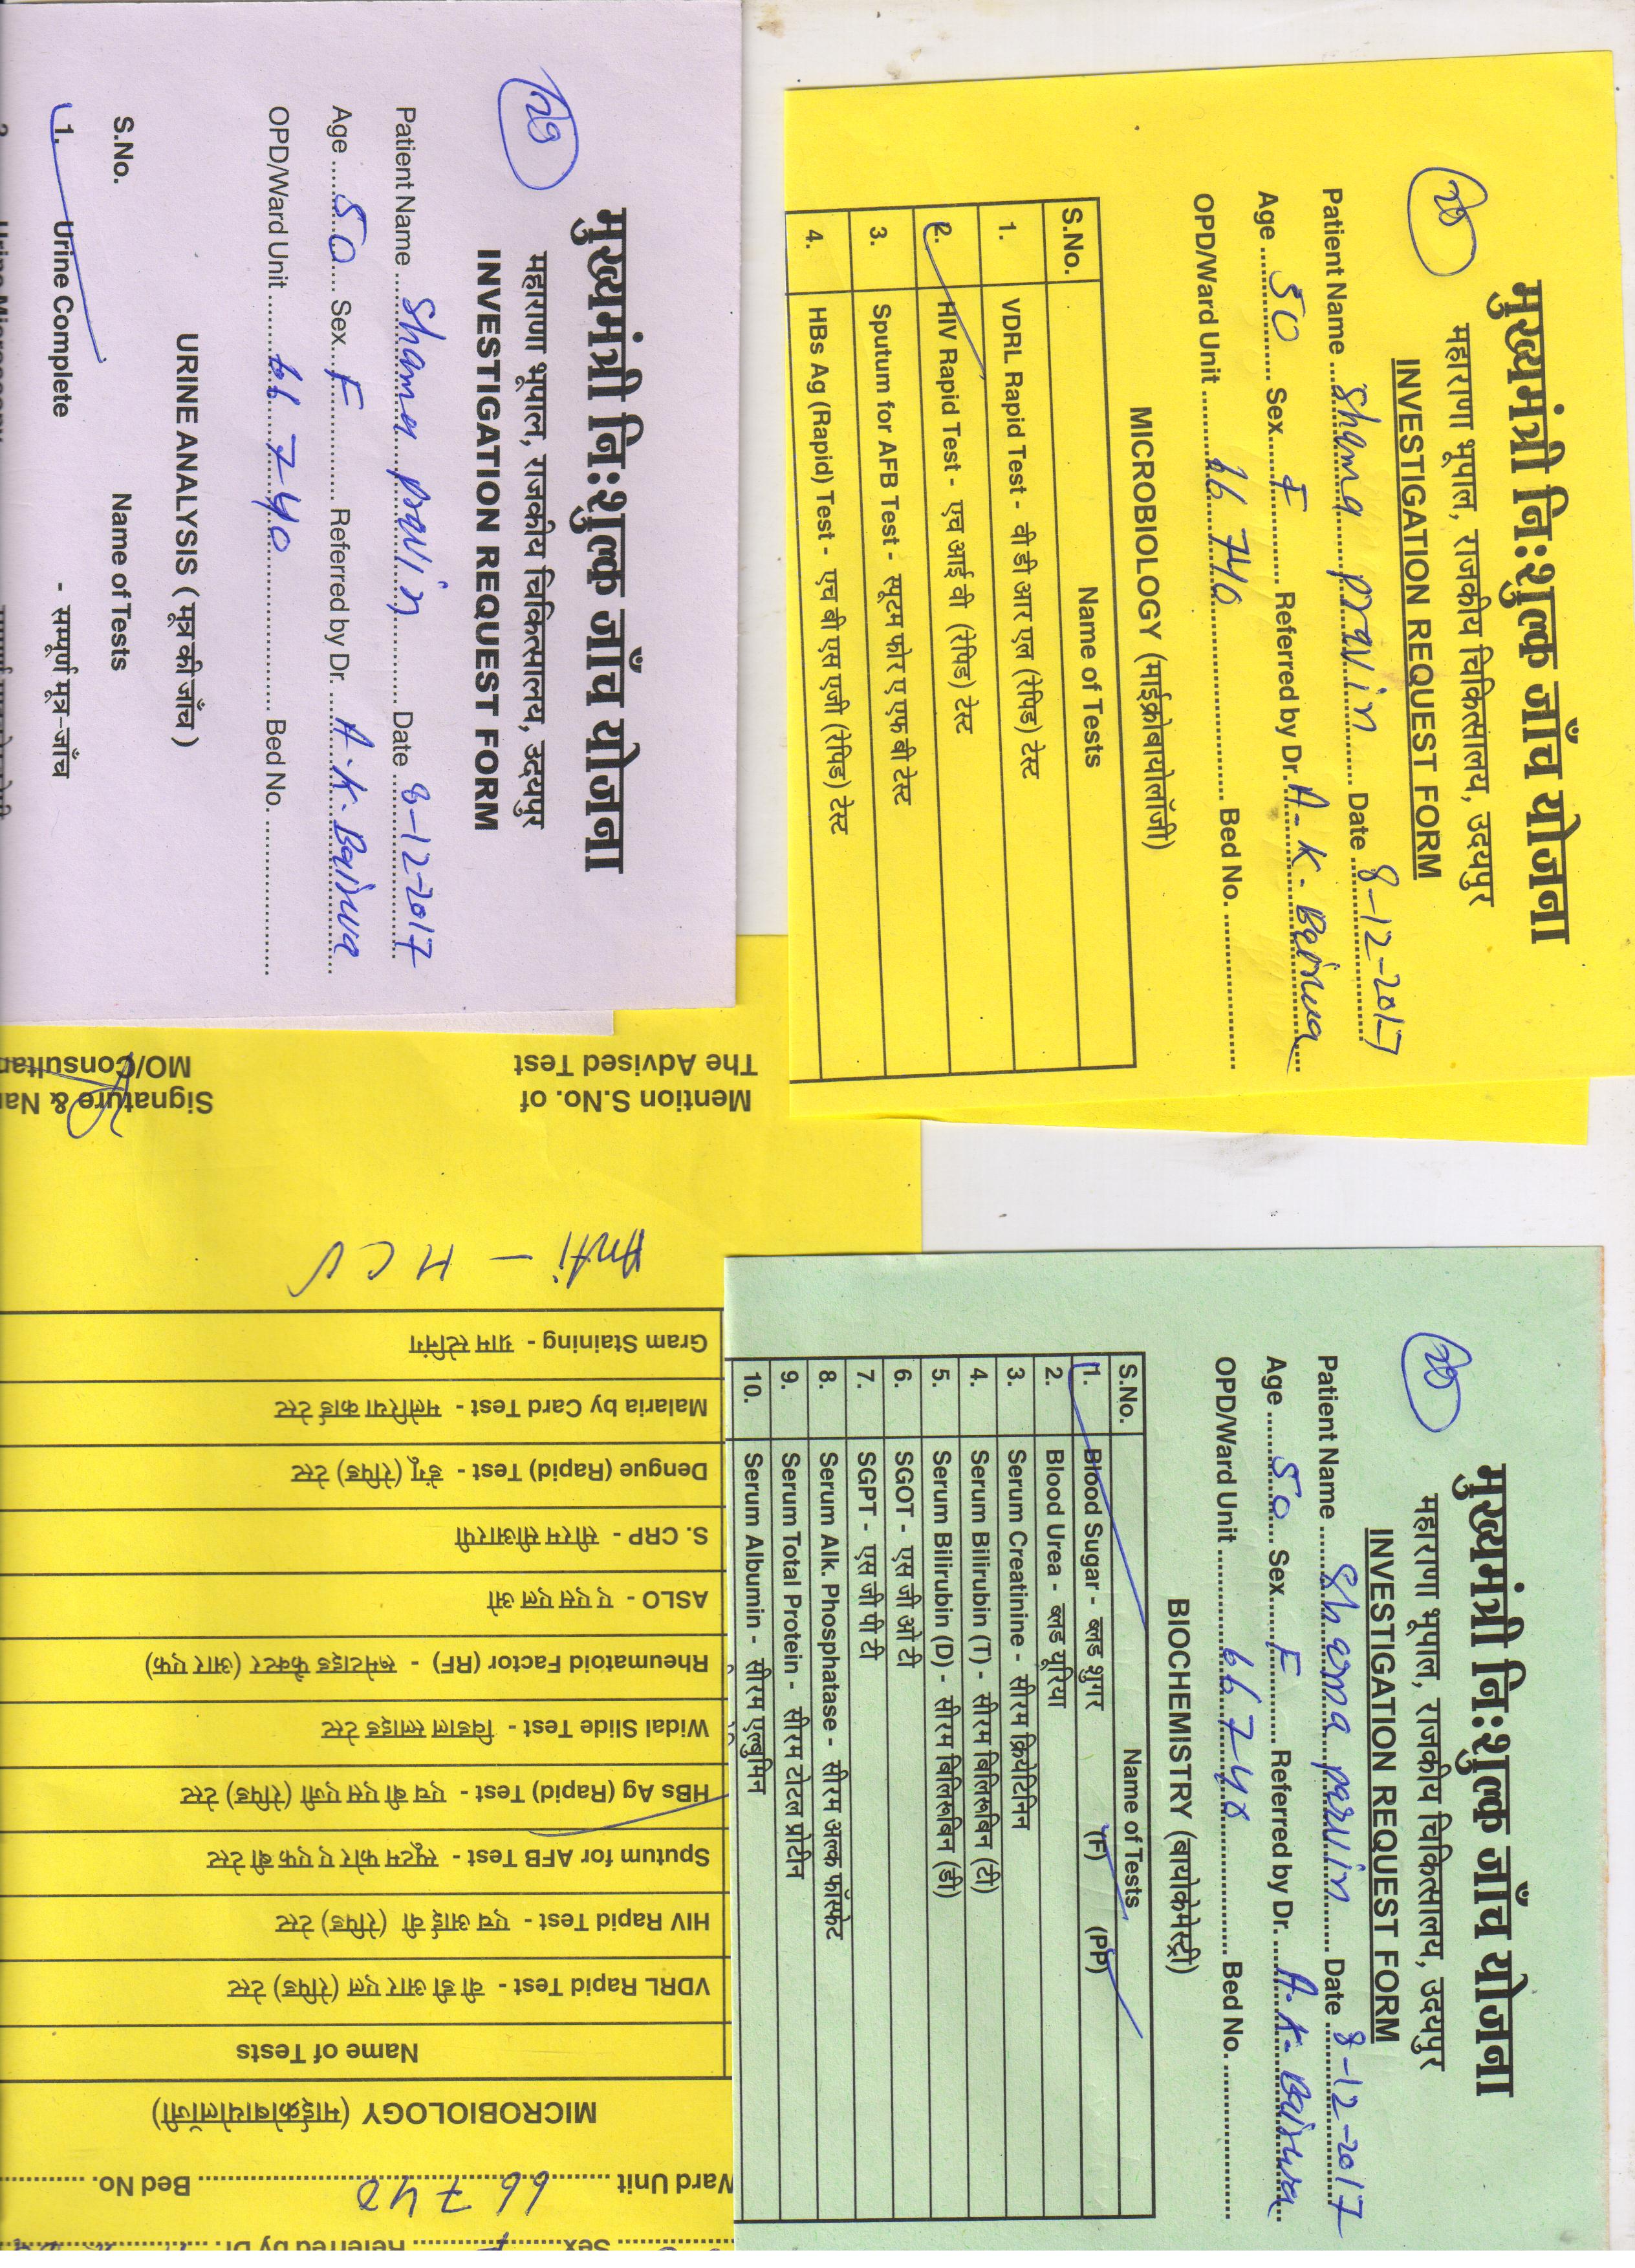 मुख्यमंत्री नि:शुल्क जाँच योजना
महाराणा भूपाल, राजकीय चिकित्सालय, उदयपुर
INVESTIGATION REQUEST FORM
Patient Name Shama parvin Date 8-12-2017
Age 50 Sex F Referred by Dr. A.K. Bairwa
OPD/Ward Unit 66740 Bed No.
URINE ANALYSIS ( मूत्र की जाँच )
S.No. Name of Tests
1. Urine Complete - सम्पूर्ण मूत्र-जाँच
20
मुख्यमंत्री नि:शुल्क जाँच योजना
महाराणा भूपाल, राजकीय चिकित्सालय, उदयपुर
INVESTIGATION REQUEST FORM
Patient Name Shama pravin Date 8-12-2017
Age 50 Sex F Referred by Dr. A.K. Bairwa
OPD/Ward Unit 66740 Bed No.
MICROBIOLOGY (माईक्रोबायोलॉजी)
S.No. Name of Tests
1. VDRL Rapid Test - वी डी आर एल (रेपिड) टेस्ट
2. HIV Rapid Test - एच आई वी (रेपिड) टेस्ट
3. Sputum for AFB Test - स्पूटम फोर ए एफ बी टेस्ट
4. HBs Ag (Rapid) Test - एच बी एस एजी (रेपिड) टेस्ट
20
मुख्यमंत्री नि:शुल्क जाँच योजना
महाराणा भूपाल, राजकीय चिकित्सालय, उदयपुर
INVESTIGATION REQUEST FORM
Patient Name Shama parvin Date 8-12-2017
Age 50 Sex F Referred by Dr. A.K. Bairwa
OPD/Ward Unit 66740 Bed No.
BIOCHEMISTRY (बायोकेमेस्ट्री)
S.No. Name of Tests
1. Blood Sugar - ब्लड शुगर (F) (PP)
2. Blood Urea - ब्लड यूरिया
3. Serum Creatinine - सीरम क्रियेटिनिन
4. Serum Bilirubin (T) - सीरम बिलिरूबिन (टी)
5. Serum Bilirubin (D) - सीरम बिलिरूबिन (डी)
6. SGOT - एस जी ओ टी
7. SGPT - एस जी पी टी
8. Serum Alk. Phosphatase - सीरम अल्क फॉस्फेट
9. Serum Total Protein - सीरम टोटल प्रोटीन
10. Serum Albumin - सीरम एल्बुमिन
Sex Referred by Dr.
Ward Unit 66740 Bed No.
MICROBIOLOGY (माईक्रोबायोलॉजी)
Name of Tests
VDRL Rapid Test - वी डी आर एल (रेपिड) टेस्ट
HIV Rapid Test - एच आई वी (रेपिड) टेस्ट
Sputum for AFB Test - स्पूटम फोर ए एफ बी टेस्ट
HBs Ag (Rapid) Test - एच बी एस एजी (रेपिड) टेस्ट
Widal Slide Test - विडाल स्लाइड टेस्ट
Rheumatoid Factor (RF) - रूमेटाइड फैक्टर (आर एफ)
ASLO - ए एस एल ओ
S. CRP - सीरम सीआरपी
Dengue (Rapid) Test - डेंगू (रेपिड) टेस्ट
Malaria by Card Test - मलेरिया कार्ड टेस्ट
Gram Staining - ग्राम स्टेनिंग
Anti - HCV
Mention S.No. of Signature &
The Advised Test MO/Consultan